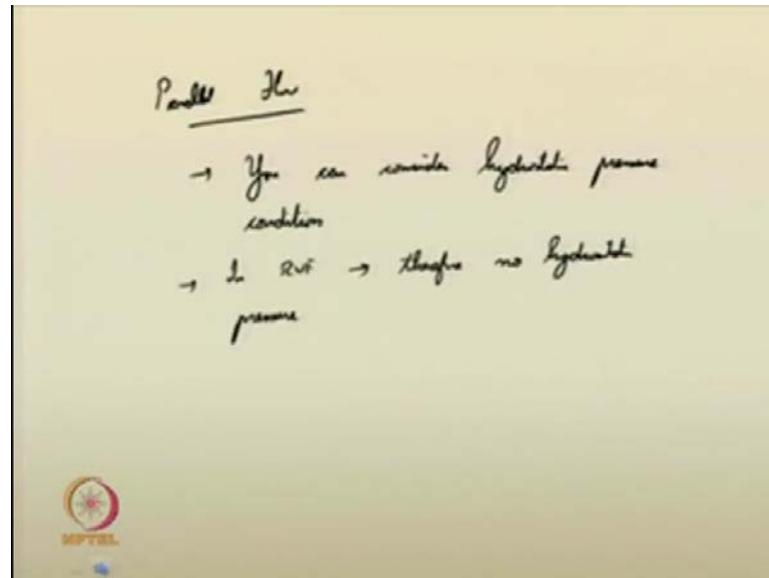 Parallel Flow
→ You can consider hydrostatic pressure
condition
→ In RVF → therefore no hydrostatic
pressure
NPTEL